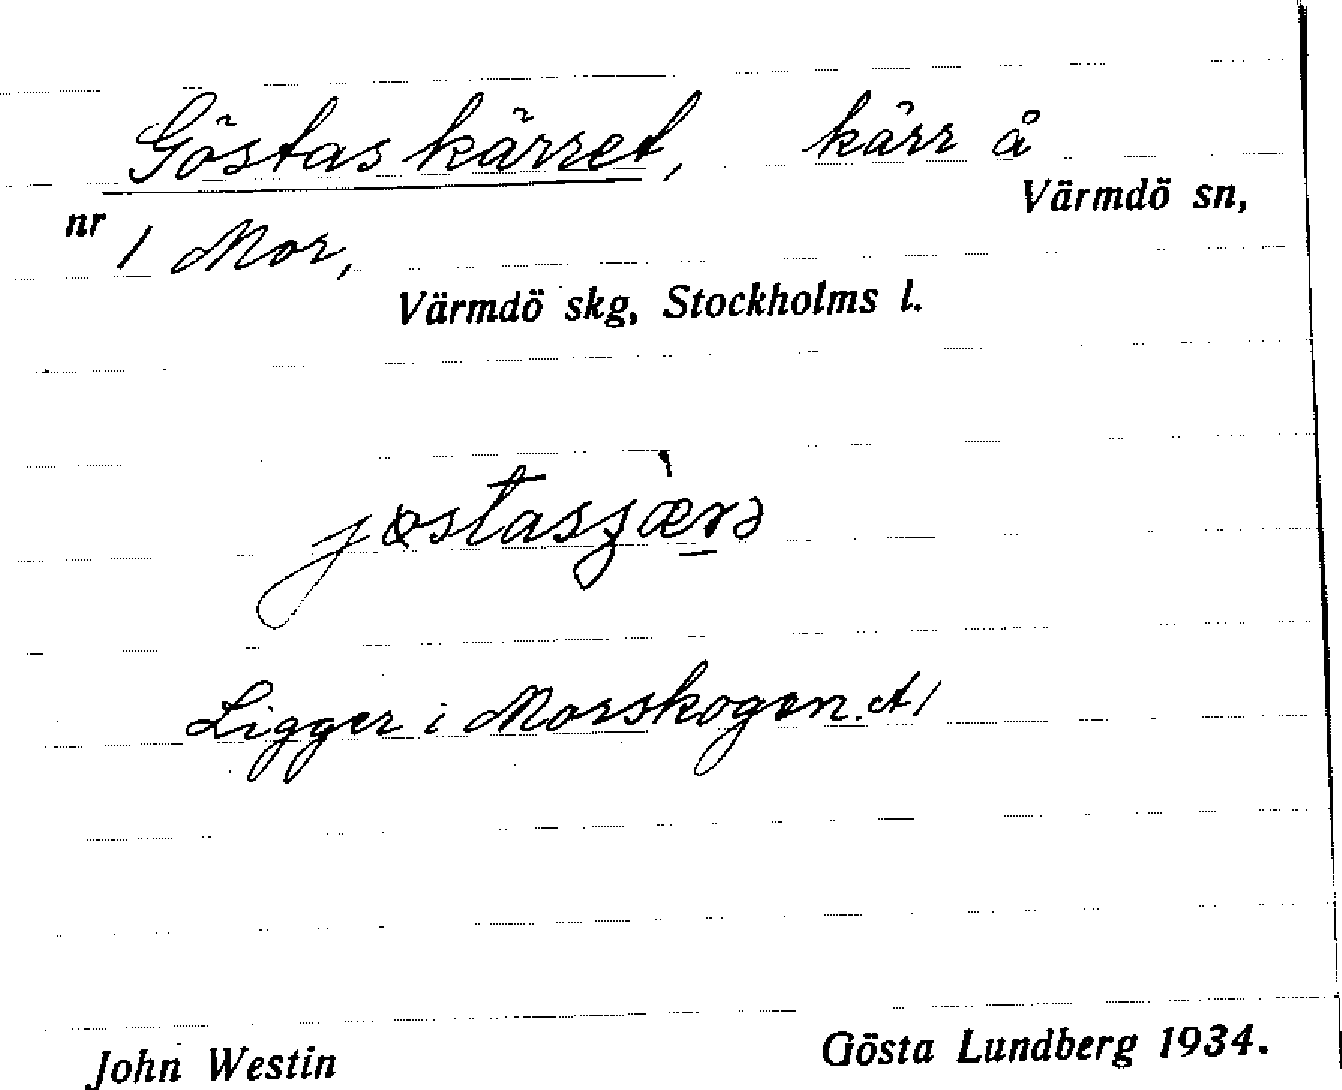 Göstaskärret, kärr å
Värmdö sn,
nr 1 Mor,
Värmdö skg, Stockholms l.
Ligger i Morskogen. A1
John Westin
Gösta Lundberg 1934.